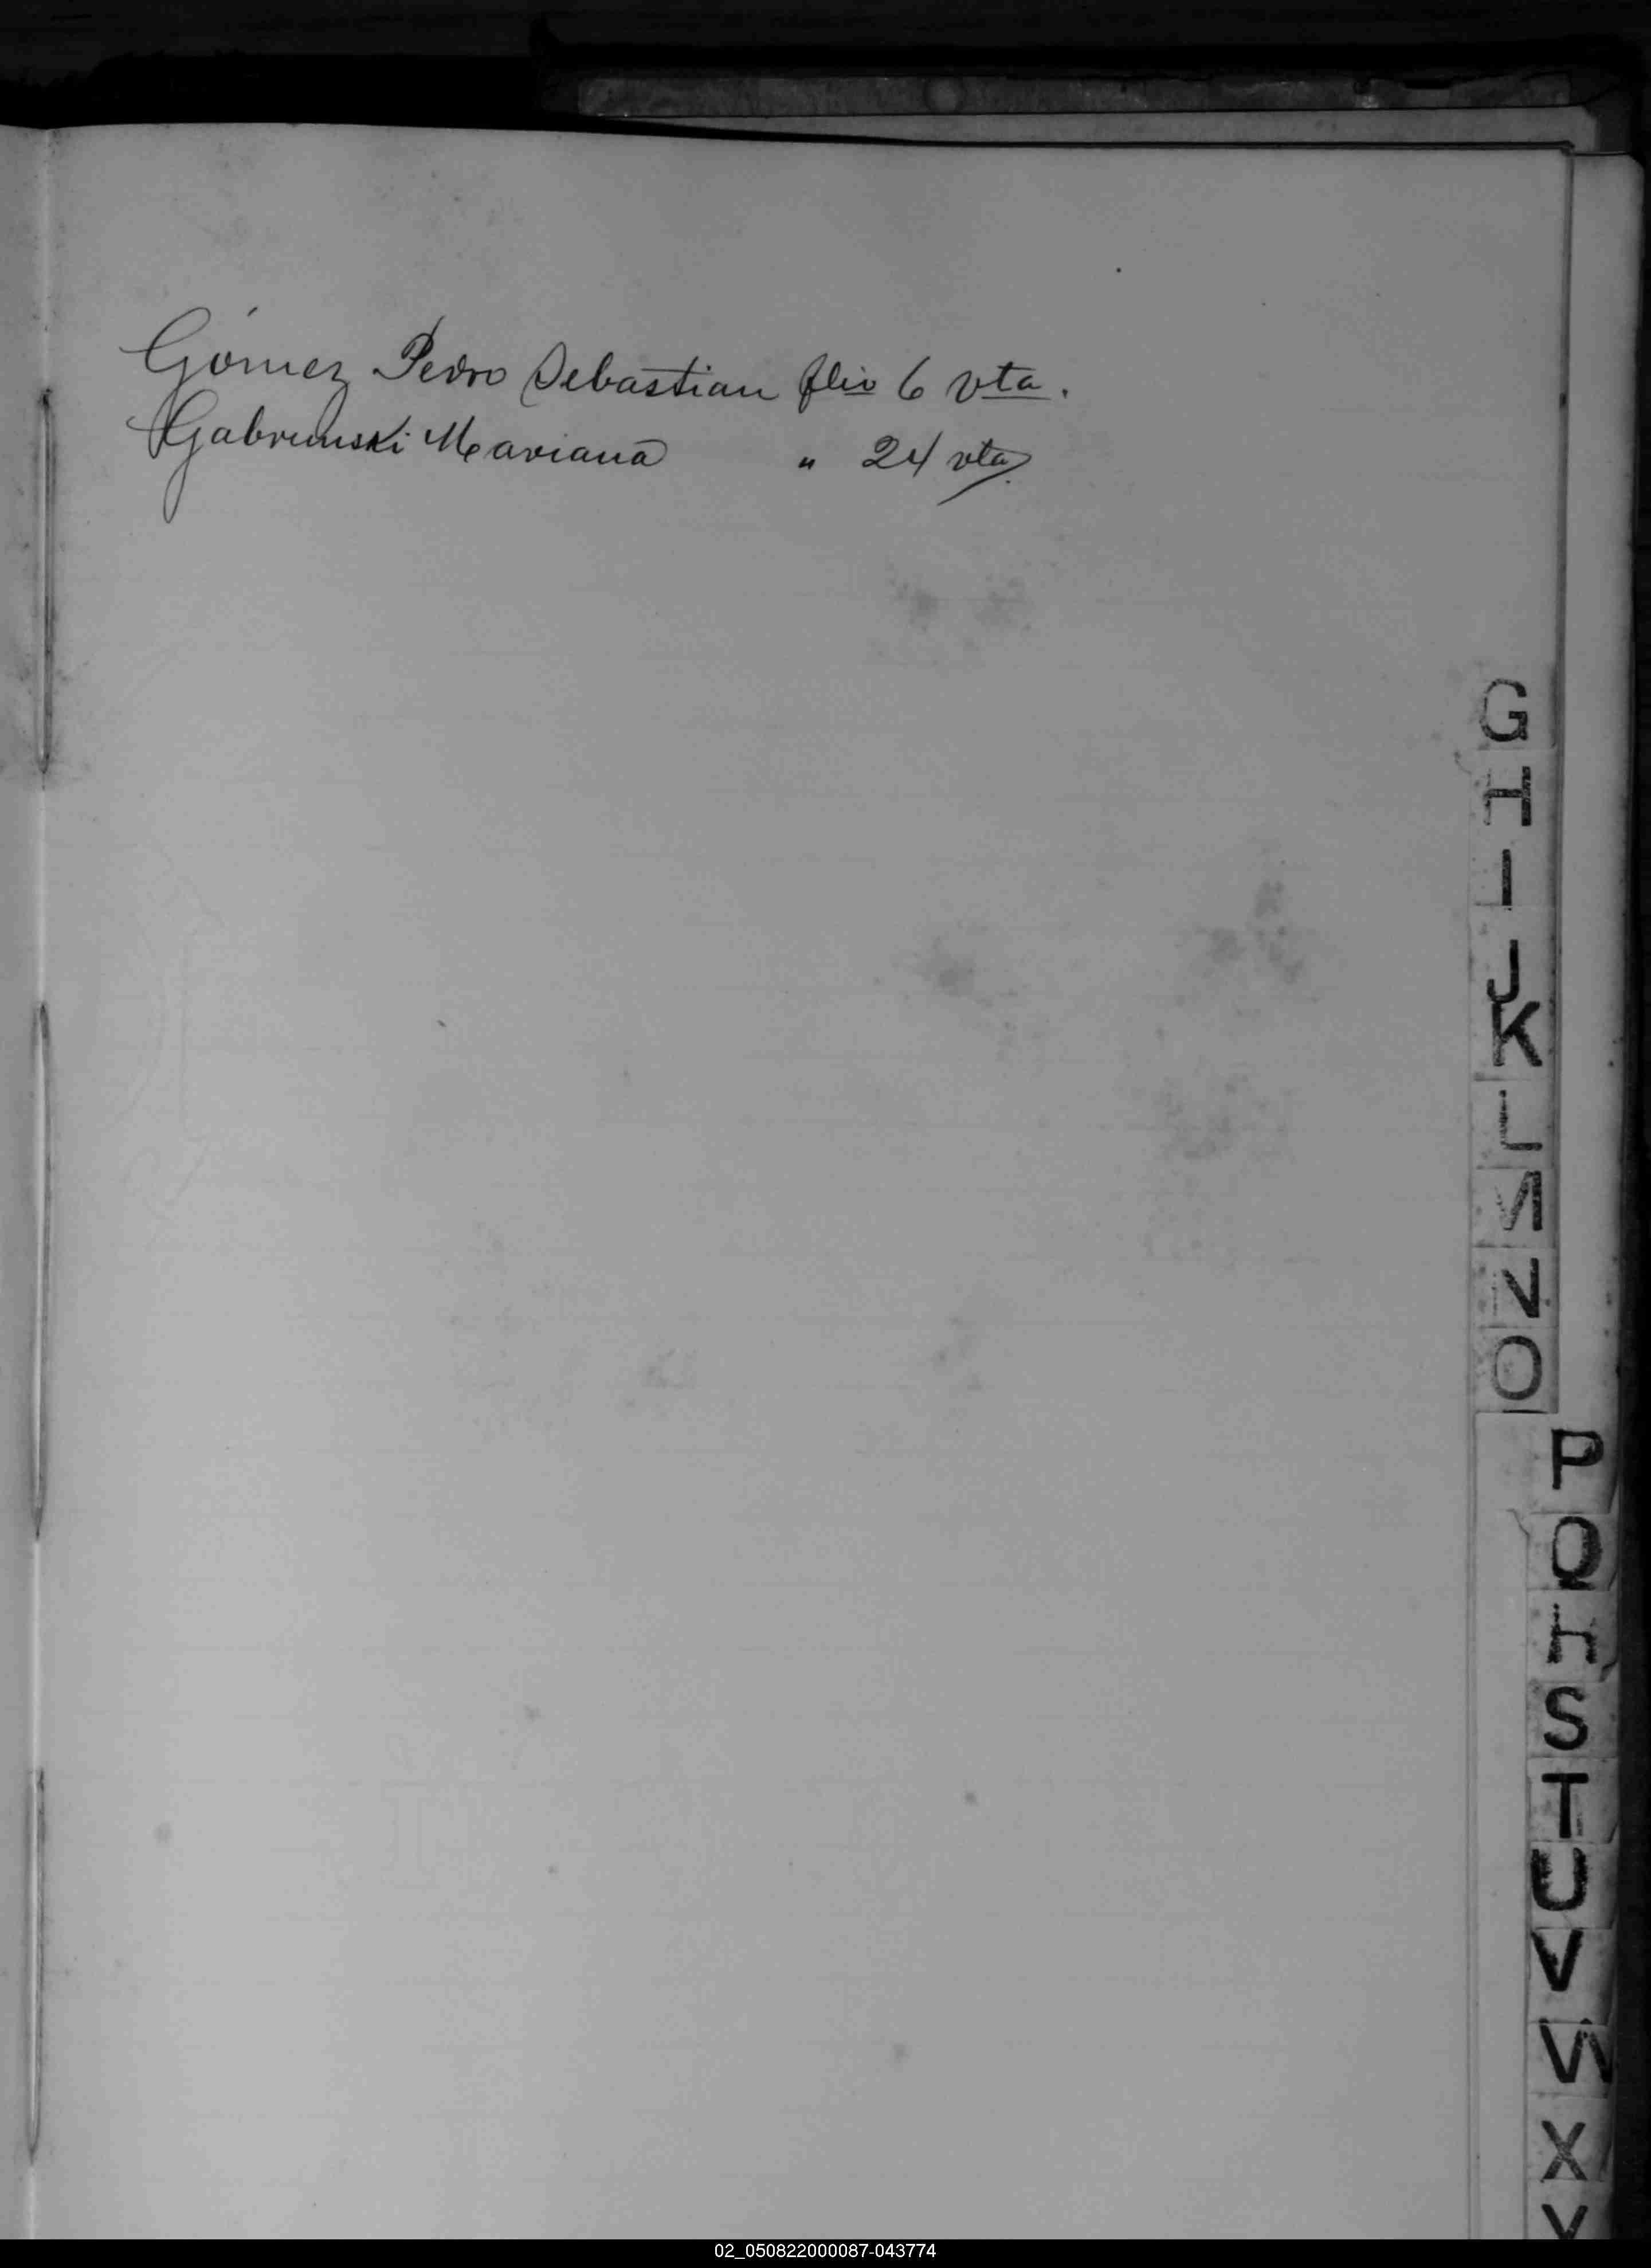 Gómez Pedro Sebastian flio 6 vta.
Mariana " 24 vta.
G
H
I
J
K
L
M
N
O
P
Q
R
S
T
U
V
W
X
Y
02_050822000087-043774